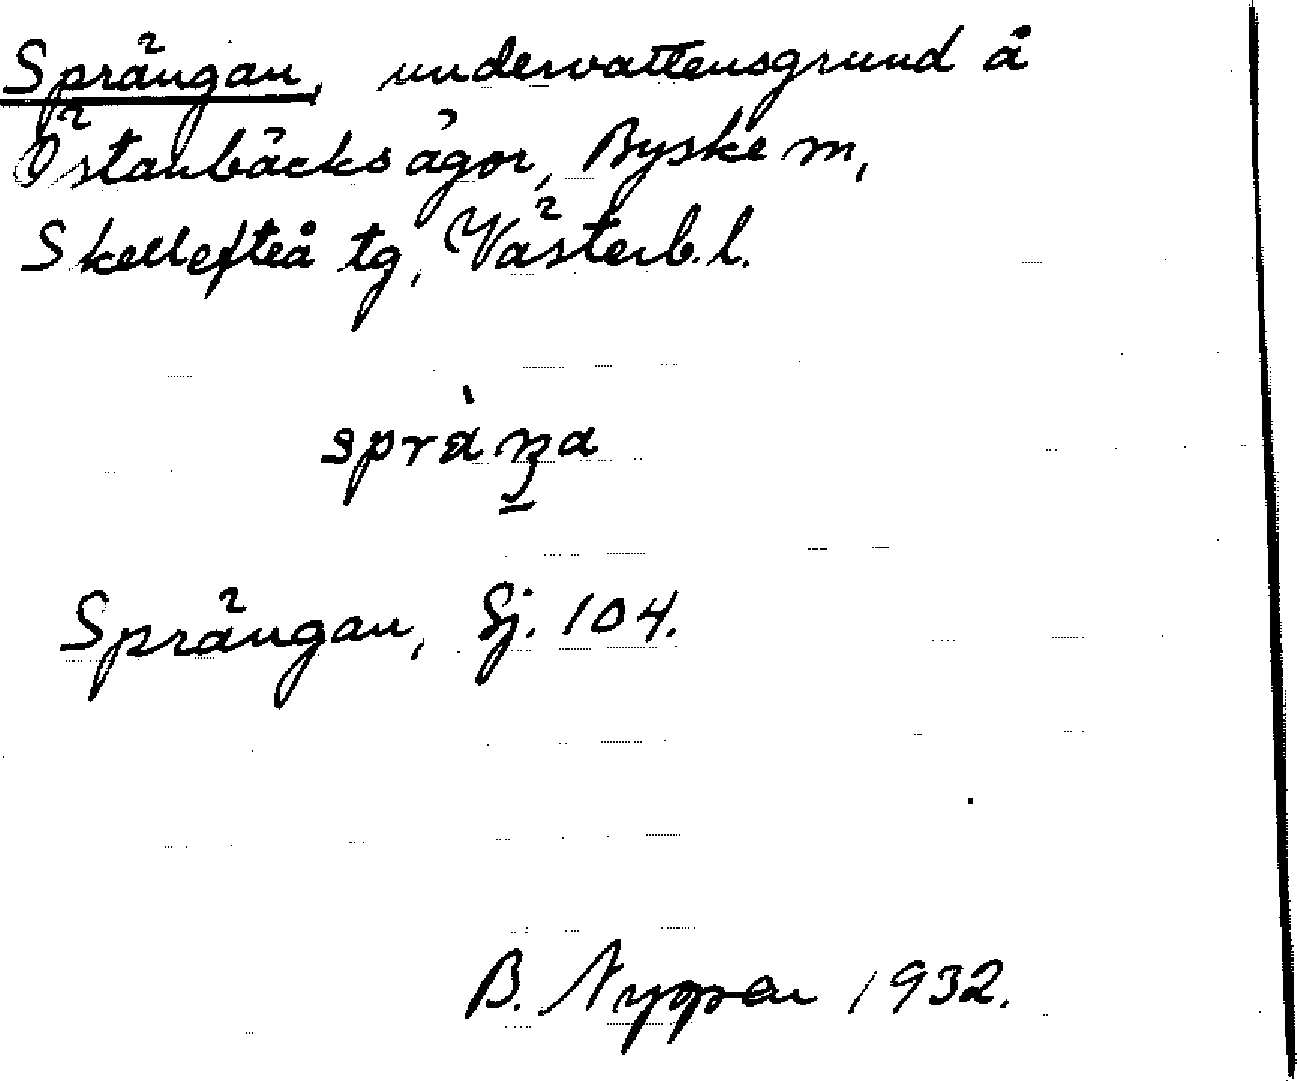 Sprängan, undervattensgrund å
Östanbäcks ägor, Byske sn,
Skellefteå tg, Västerb. l.
spràŋa
Sprängan, Sj. 104.
B. Nyppen 1932.